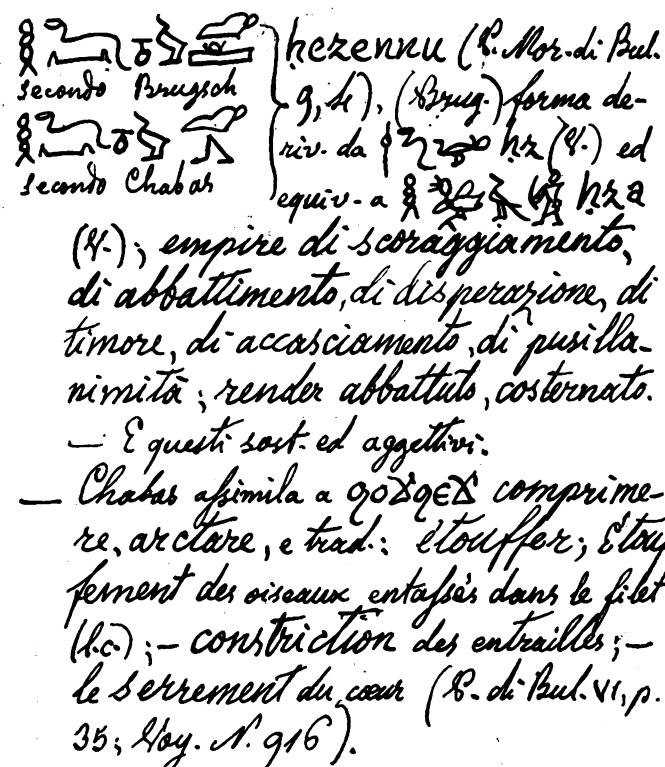 secondo Brugsch
secondo Chabas
ḥezennu (P. Mor. di Bul.
9, (Brug.) forma de-
riv. da ḥz (V.) ed
equiv. a ḥza
(V.); empire di scoraggiamento,
di abbattimento, di disperazione, di
timore, di accasciamento, di pusilla-
nimità; render abbattuto, costernato.
— E questi sost. ed aggettivi.
— Chabas assimila a ϩⲟϫϩⲉϫ comprime-
re, arctare, e trad.: étouffer; Étouf
fement des oiseaux entassés dans le filet
(l.c.); — constriction des entrailles; —
le serrement du cœur (P. di Bul. VI, p.
35; Voy. N. 916).